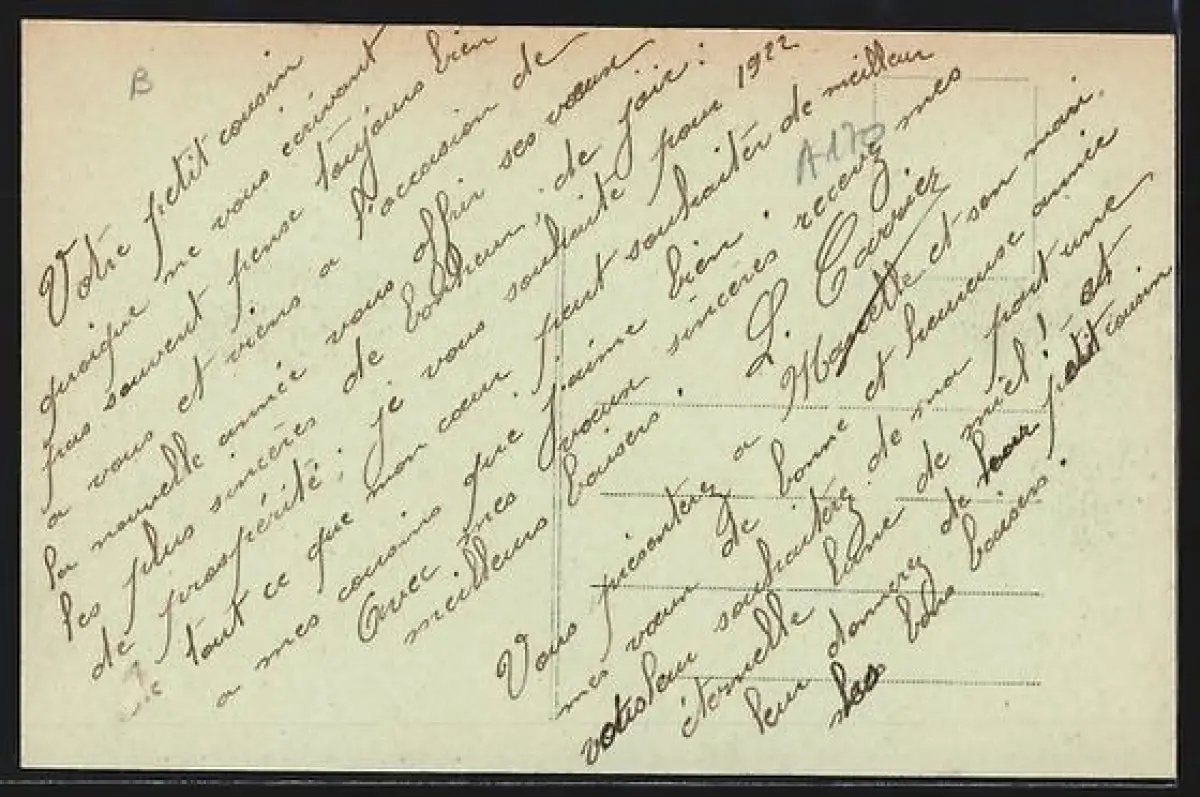 B
A170
Votre petit cousin
quoique ne vous écrivant
pas souvent pense toujours bien
a vous et viens a l'occasion de
la nouvelle année vous offrir ses vœux
les plus sincères de bonheur, de joie :
de prospérité ; je vous souhaite pour 1922
tout ce que mon cœur peut souhaiter de meilleur
a mes cousins que j'aime bien. recevez mes
Avec mes vœux sincères
meilleurs baisers.
L. Carriez
Vous présenterez a et son mari,
mes vœux de bonne et heureuse année
souhaitez de ma part une
éternelle lune de miel ! et
leur donnerez de leur petit cousin
les bons baisers.